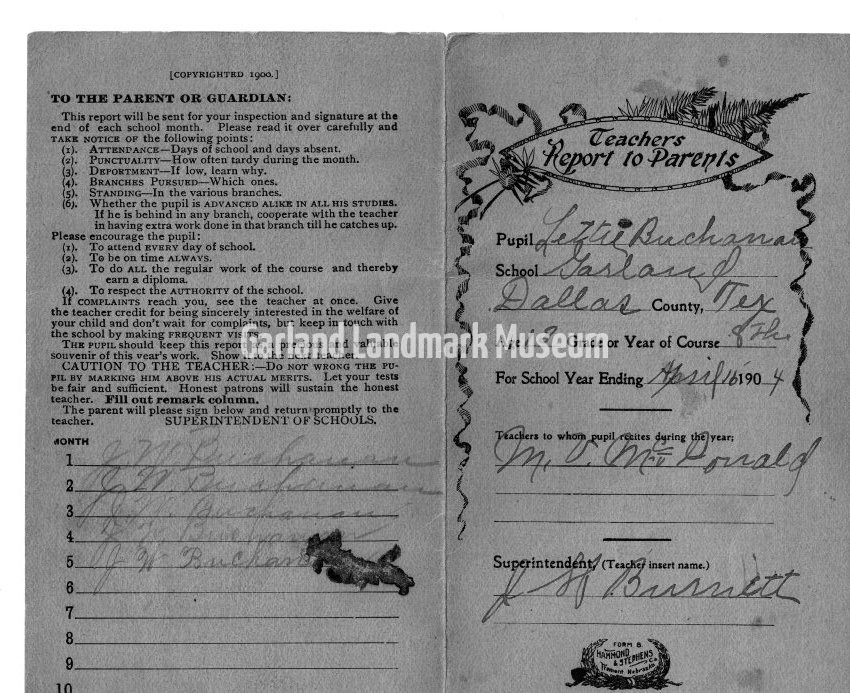 [COPYRIGHTED 1900.]
TO THE PARENT OR GUARDIAN:
This report will be sent for your inspection and signature at the
end of each school month. Please read it over carefully and
TAKE NOTICE OF the following points:
(1). ATTENDANCE—Days of school and days absent.
(2). PUNCTUALITY—How often tardy during the month.
(3). DEPORTMENT—If low, learn why.
(4). BRANCHES PURSUED—Which ones.
(5). STANDING—In the various branches.
(6). Whether the pupil is ADVANCED ALIKE IN ALL HIS STUDIES.
If he is behind in any branch, cooperate with the teacher
in having extra work done in that branch till he catches up.
Please encourage the pupil:
(1). To attend EVERY day of school.
(2). To be on time ALWAYS.
(3). To do ALL the regular work of the course and thereby
earn a diploma.
(4). To respect the AUTHORITY of the school.
If COMPLAINTS reach you, see the teacher at once. Give
the teacher credit for being sincerely interested in the welfare of
your child and don't wait for complaints, but keep in touch with
the school by making FREQUENT VISITS.
THE PUPIL should keep this report as a precious and valuable
souvenir of this year's work. Show to the next teacher.
CAUTION TO THE TEACHER:—DO NOT WRONG THE PU-
PIL BY MARKING HIM ABOVE HIS ACTUAL MERITS. Let your tests
be fair and sufficient. Honest patrons will sustain the honest
teacher. Fill out remark column.
The parent will please sign below and return promptly to the
teacher. SUPERINTENDENT OF SCHOOLS.
MONTH
1 J. W. Buchanan
2 J W Buchanan
3 J. W. Buchanan
4 J W Buchanan
5 J W Buchan
6
7
8
9
10
Teachers
Report to Parents
Pupil Lettie Buchanan
School Garland
Dallas County, Tex
Age 13 Grade or Year of Course 8th
For School Year Ending April 15 1904
Teachers to whom pupil recites during the year:
M. V. McDonald
Superintendent, (Teacher insert name.)
Burnett
FORM 8.
HAMMOND
& STEPHENS
Co
Fremont Nebraska
Garland Landmark Museum